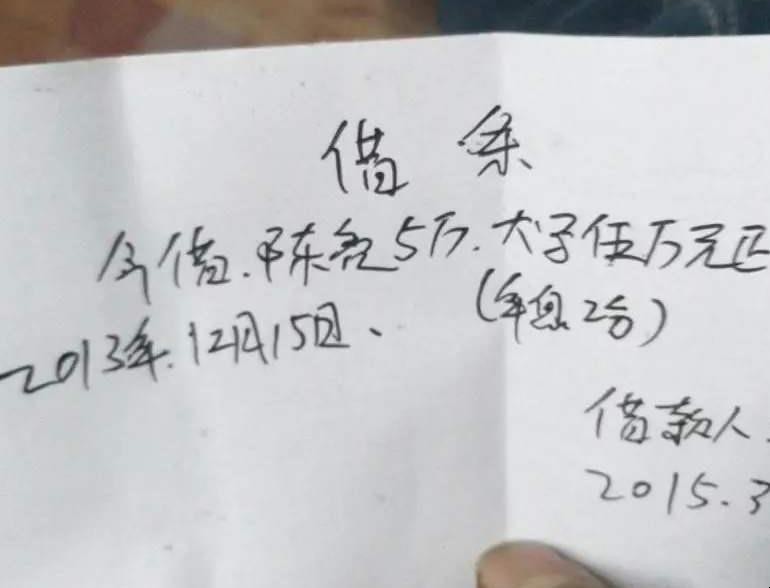 借条
今借.陈 5万.大字伍万元正
2013年.12月15日、
(年息2分)
借款人.
2015.3